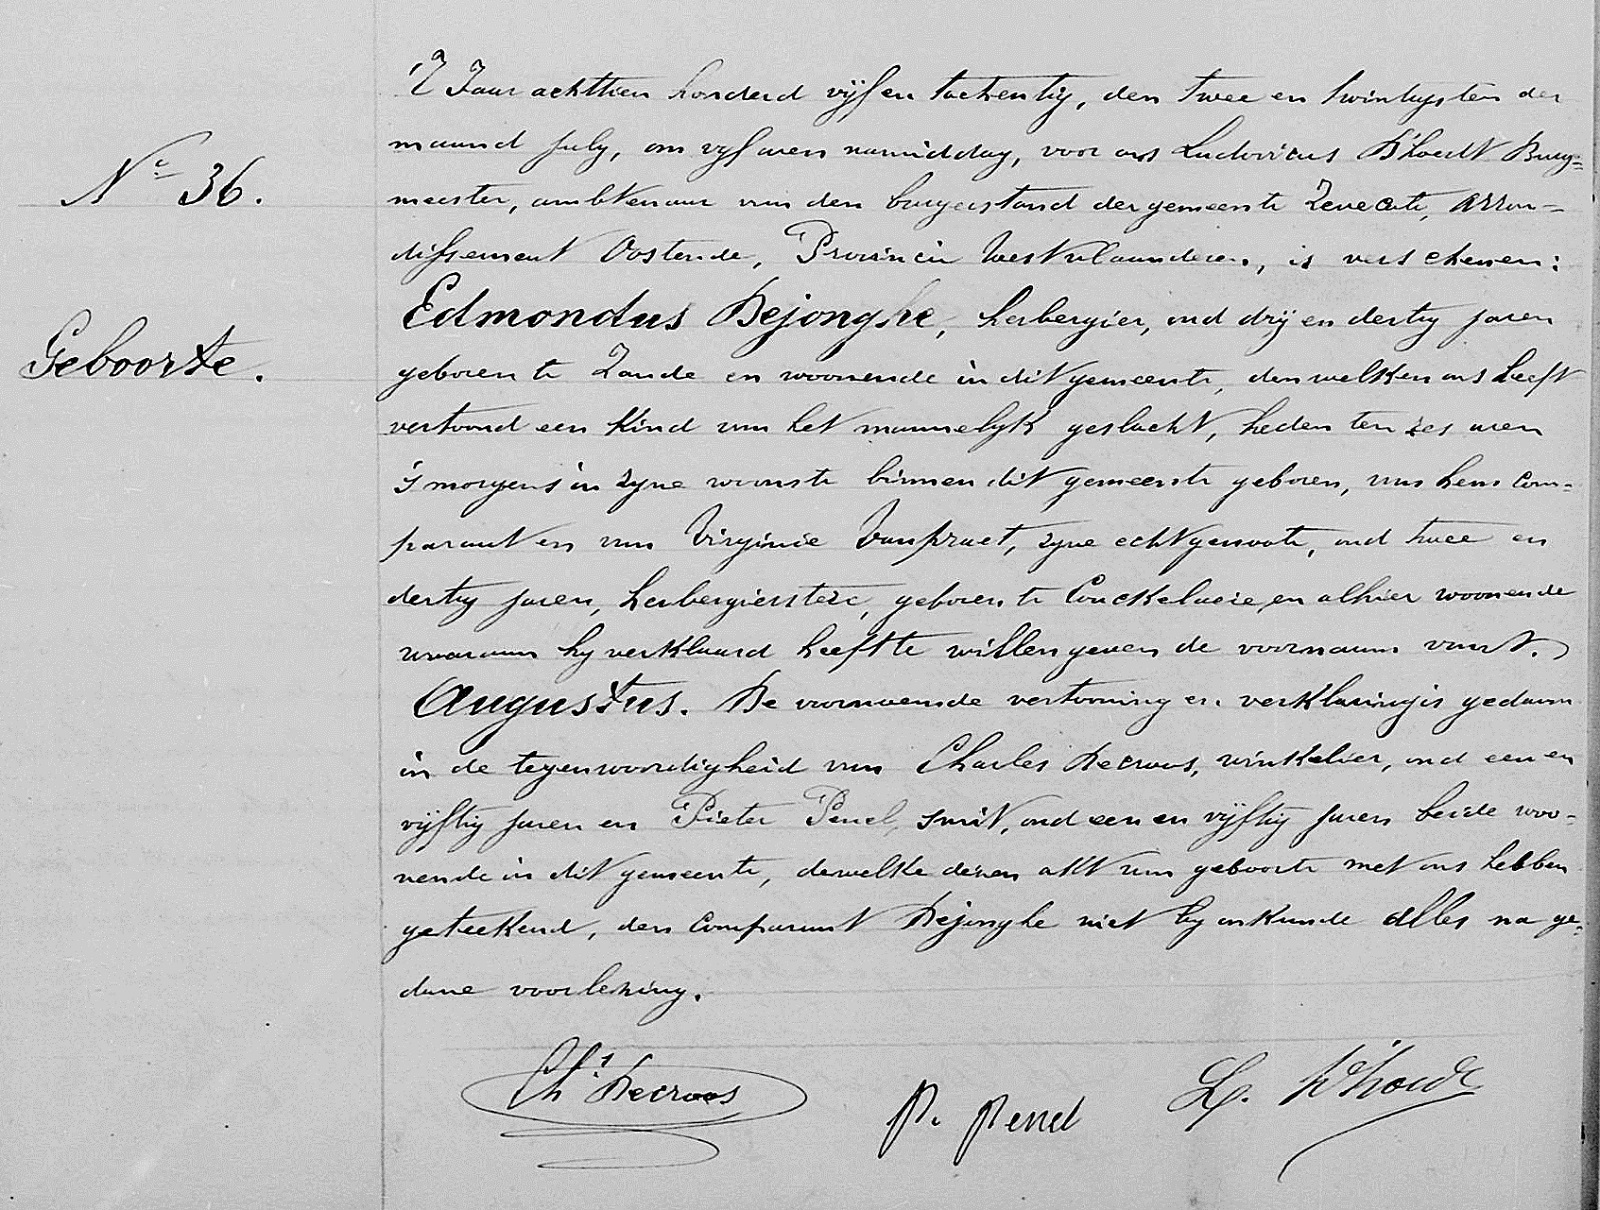 'T Jaar achttien honderd vijf en tachentig, den twee en twintigsten der
maand july, om vyf uren namiddag, voor ons Ludovicus D'hoedt Burg=
N.º 36.
meester, ambtenaar van den burgerstand der gemeente Zevecote, Arron-
dissement Oostende, Provincie Westvlaanderen, is verschenen:
Edmondus Dejonghe, herbergier, oud drij en dertig jaren
Geboorte.
geboren te Zande en woonende in dit gemeente, den welken ons heeft
vertoond een kind van het mannelyk geslacht, heden ten zes uren
's morgens in zyne woonste binnen dit gemeente geboren, van hem Com=
parant en van Virginie Vanpraet, zyne echtgenoote, oud twee en
dertig jaren, herbergierstere, geboren te Couckelaere, en alhier woonende
waaraan hy verklaard heeft te willen geven de voornaam van
Augustus. De voornoemde vertooning en verklaring is gedaan
in de tegenwoordigheid van Charles Decroos, winkelier, oud een en
vijftig jaren en Pieter Penel, smit, oud een en vijftig jaren beide woo-
nende in dit gemeente, dewelke dezen akt van geboorte met ons hebben
geteekend, den Comparant Dejonghe niet by onkunde alles na ge=
dane voorlezing.
Ch.s Decroos
P. Penel
L. D'hoedt